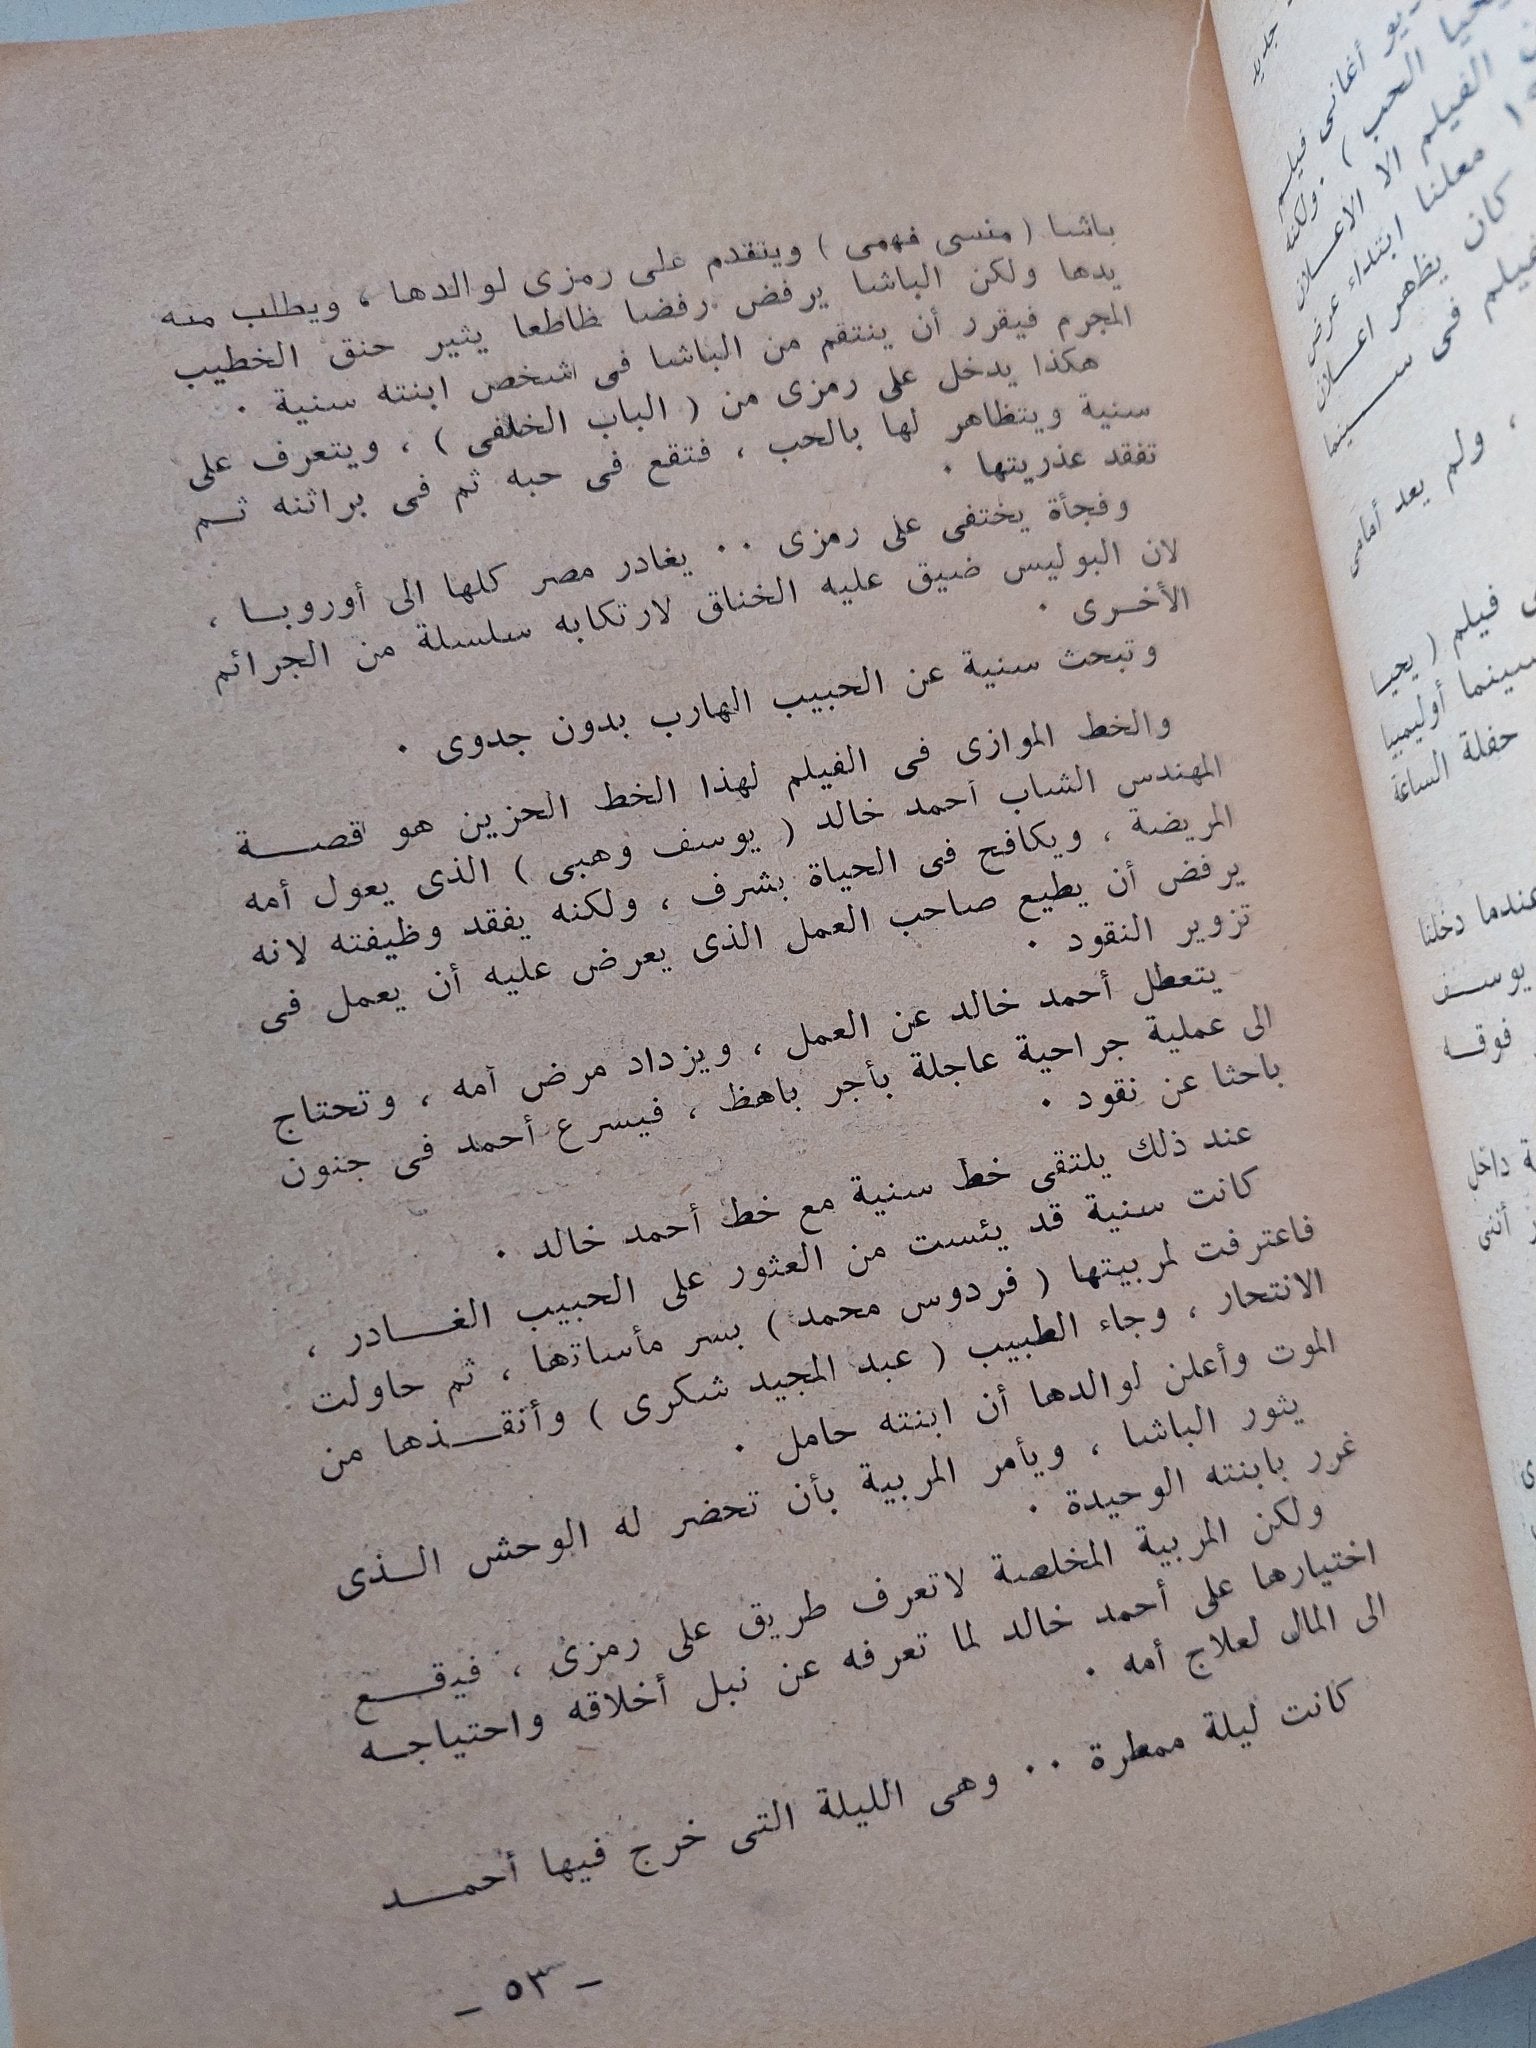 باشا ( منسى فهمى ) ويتقدم على رمزى لوالدها ، ويطلب منه
يدها ولكن الباشا يرفض رفضا ظاطعا يثير حنق الخطيب
المجرم فيقرر أن ينتقم من الباشا فى شخص ابنته سنية .
هكذا يدخل على رمزى من ( الباب الخلفى ) ، ويتعرف على
سنية ويتظاهر لها بالحب ، فتقع فى حبه ثم فى براثنه ثم
تفقد عذريتها .
وفجأة يختفى على رمزى .. يغادر مصر كلها الى أوروبا ،
لان البوليس ضيق عليه الخناق لارتكابه سلسلة من الجرائم
الأخرى .
وتبحث سنية عن الحبيب الهارب بدون جدوى .
والخط الموازى فى الفيلم لهذا الخط الحزين هو قصة
المهندس الشاب أحمد خالد ( يوسف وهبى ) الذى يعول أمه
المريضة ، ويكافح فى الحياة بشرف ، ولكنه يفقد وظيفته لانه
يرفض أن يطيع صاحب العمل الذى يعرض عليه أن يعمل فى
تزوير النقود .
يتعطل أحمد خالد عن العمل ، ويزداد مرض أمه ، وتحتاج
الى عملية جراحية عاجلة بأجر باهظ ، فيسرع أحمد فى جنون
باحثا عن نقود .
عند ذلك يلتقى خط سنية مع خط أحمد خالد .
كانت سنية قد يئست من العثور على الحبيب الغادر ،
فاعترفت لمربيتها ( فردوس محمد ) بسر مأساتها ، ثم حاولت
الانتحار ، وجاء الطبيب ( عبد المجيد شكرى ) وأنقذها من
الموت وأعلن لوالدها أن ابنته حامل .
يثور الباشا ، ويأمر المربية بأن تحضر له الوحش الذى
غرر بابنته الوحيدة .
ولكن المربية المخلصة لاتعرف طريق على رمزى ، فيقع
اختيارها على أحمد خالد لما تعرفه عن نبل أخلاقه واحتياجه
الى المال لعلاج أمه .
كانت ليلة ممطرة .. وهى الليلة التى خرج فيها أحمد
- ٥٣ -
جديد
أغانى فيلم
يحيا الحب ) . ولكنه
الفيلم الا الاعلان
معلنا ابتداء عرض
كان يظهر اعلان
فيلم فى سينما
، ولم يعد أمامى
فيلم ( يحيا
سينما أوليمبيا
حفلة الساعة
عندما دخلنا
يوسف
فوقه
داخل
أننى